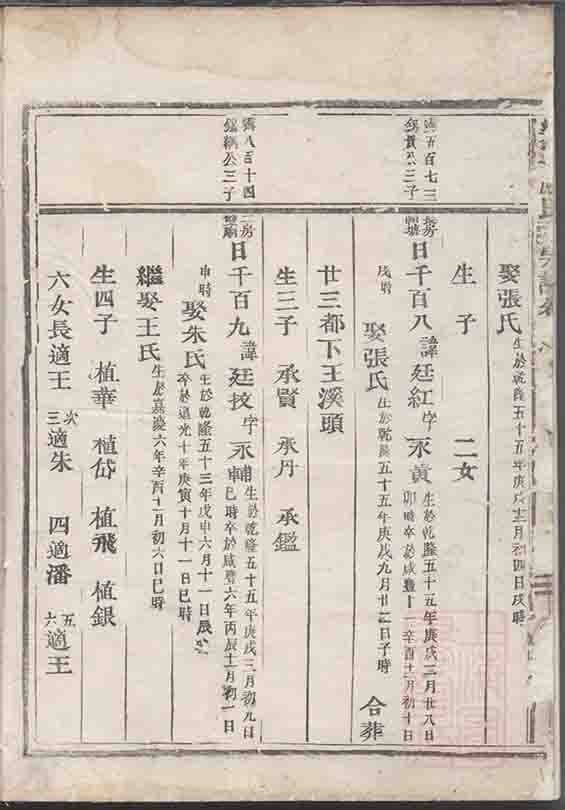 娶張氏 生於乾隆五十五年庚戌十二月初四日戌時
生 子 二女
五百七三
貴公三子
房
日千百八 諱廷紅 字永黃 生於乾隆五十五年庚戌二月廿八日
卯時卒於咸豐十一辛酉十二月初十日
戌時 娶張氏 生於乾隆五十五年庚戌九月廿二日子時 合葬
廿三都下王溪頭
生三子 承賢 承丹 承鑑
八百十四
公三子
二房
日千百九 諱廷技 字永輔 生於乾隆五十五年庚戌三月初九日
巳時卒於咸豐六年丙辰十一月初一日
申時 娶朱氏 生於乾隆五十三年戊申六月十一日辰
卒於道光十年庚寅十月十一日巳時
繼娶王氏 生於嘉慶六年辛酉十二月初六日巳時
生四子 植華 植岱 植飛 植銀
六女長適王 次三適朱 四適潘 五六適王